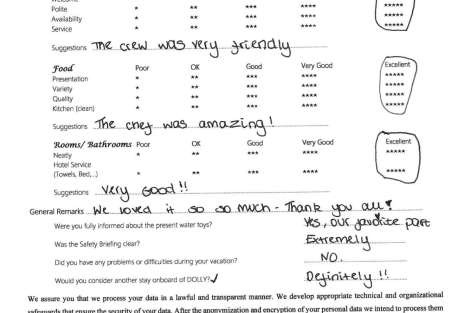 Polite * ** *** **** *****
Availability * ** *** **** *****
Service * ** *** **** *****
Suggestions The crew was very friendly
Food Poor OK Good Very Good Excellent
Presentation * ** *** **** *****
Variety * ** *** **** *****
Quality * ** *** **** *****
Kitchen (clean) * ** *** **** *****
Suggestions The chef was amazing!
Rooms/ Bathrooms Poor OK Good Very Good Excellent
Neatly * ** *** **** *****
Hotel Service
(Towels, Bed,..) * ** *** **** *****
Suggestions Very Good!!
General Remarks We loved it so so much - Thank you all
Were you fully informed about the present water toys? Yes, our favorite part
Was the Safety Briefing clear? Extremely
Did you have any problems or difficulties during your vacation? NO.
Would you consider another stay onboard of DOLLY? ✓ Definitely!!
We assure you that we process your data in a lawful and transparent manner. We develop appropriate technical and organizational
safeguards that ensure the security of your data. After the anonymization and encryption of your personal data we intend to process them